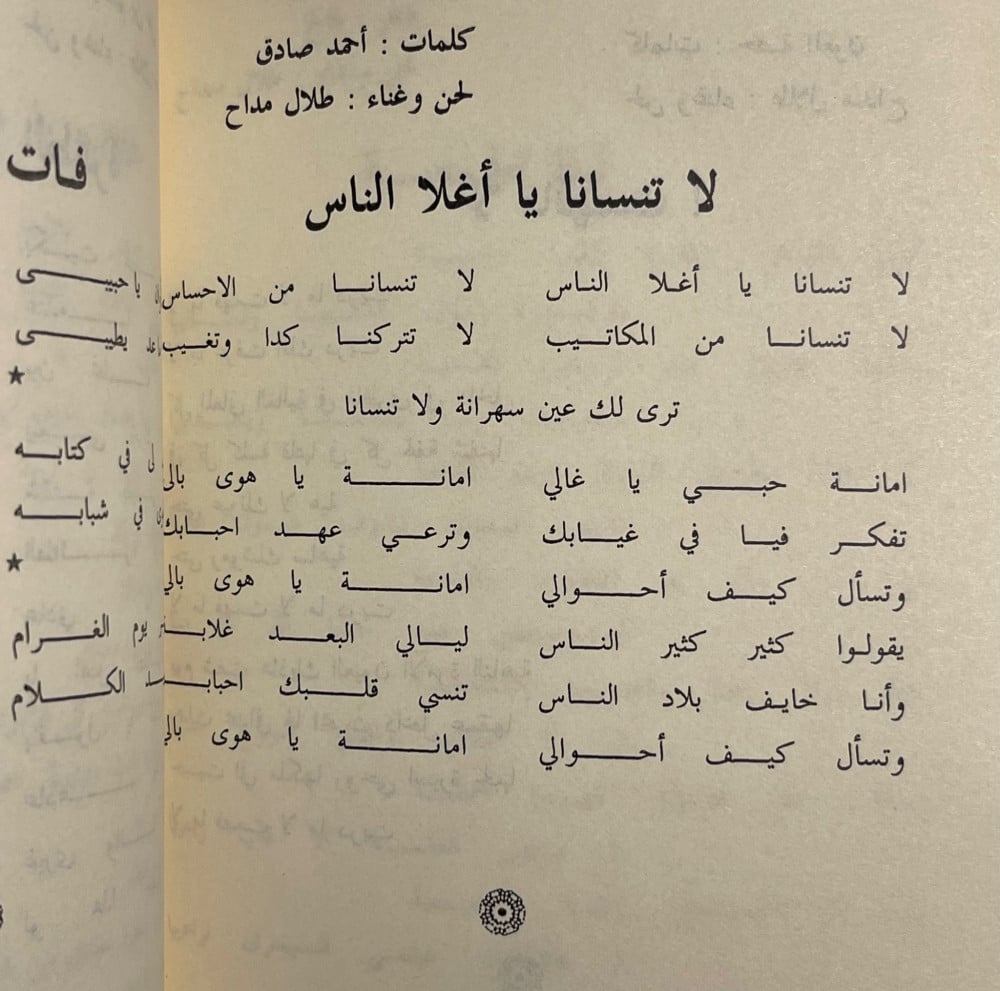 كلمات : أحمد صادق
لحن وغناء : طلال مداح
لا تنسانا يا أغلا الناس
لا تنسانا يا أغلا الناس لا تنسانا من الاحساس
لا تنسانا من المكاتيب لا تتركنا كدا وتغيب
ترى لك عين سهرانة ولا تنسانا
امانة حبي يا غالي امانة يا هوى بالي
تفكر فيا في غيابك وترعي عهد احبابك
وتسأل كيف أحوالي امانة يا هوى بالي
يقولوا كثير كثير الناس ليالي البعد غلابة
وأنا خايف بلاد الناس تنسي قلبك احبابه
وتسأل كيف أحوالي امانة يا هوى بالي
فات
يا حبيبى
يطيبى
★
في كتابه
في شبابه
★
يوم الغرام
الكلام